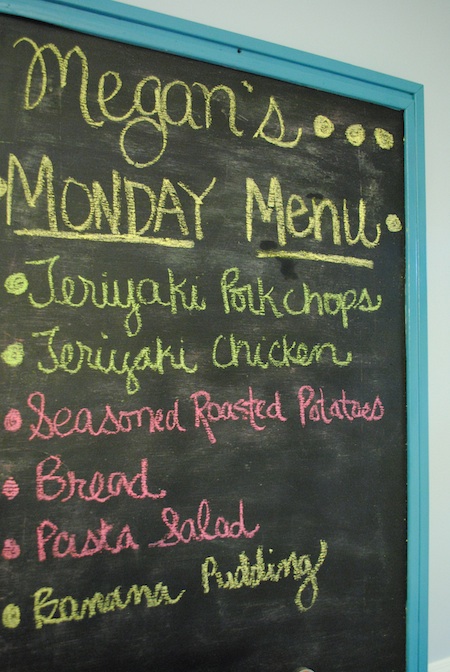 Megan's...
Monday Menu
Teriyaki Porkchops
Teriyaki Chicken
Seasoned Roasted Potatoes
Bread
Pasta Salad
Banana Pudding